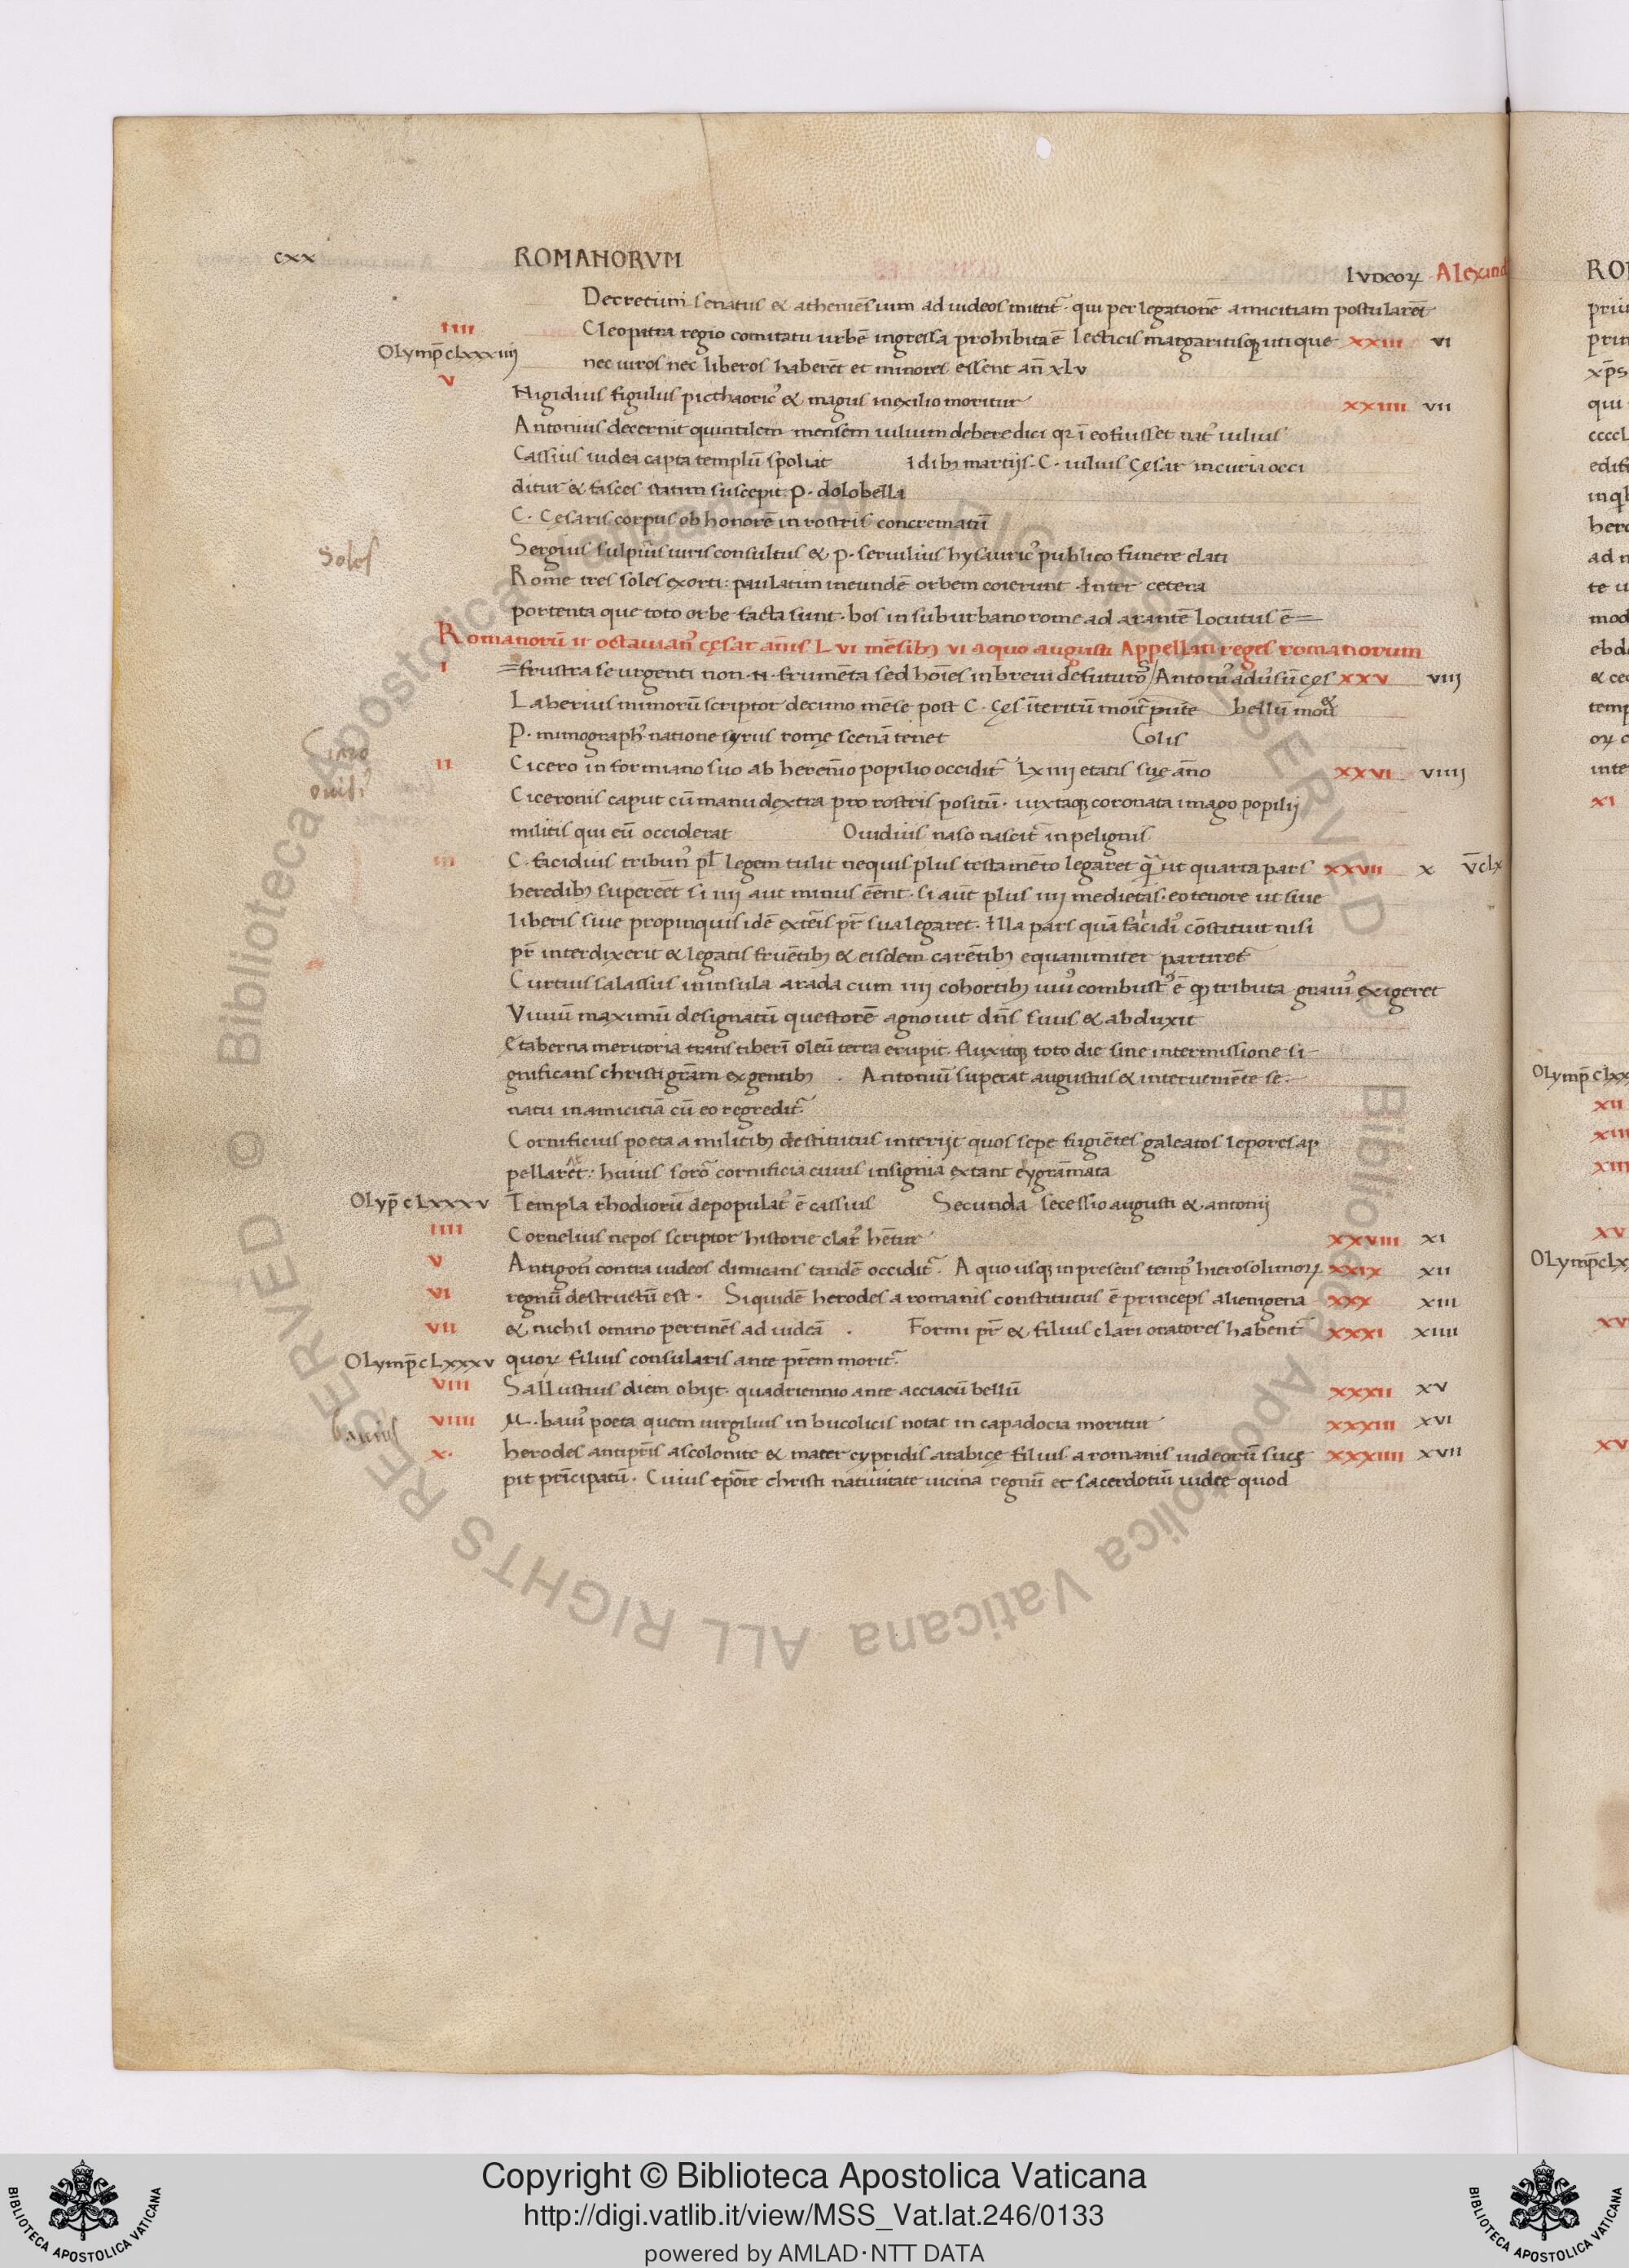 cxx ROMANORVM IVDEOꝜ Alexand
Decretum senatus & atheniēsium ad iudeos mittit᷑ · qui per legationē amicitiam postularēt
IIII Cleopatra regio comitatu urbē ingressa prohibita ē lecticis margaritisq; uti que XXIII VI
Olymp̄ cLxxxiiij nec uiros nec liberos haberēt et minores essent an̄ xLv
V Nigidius figulus picthaoricꝰ & magus inexilio moritur XXIIII VII
Antonius decernit quintilem mensem iulium debere dici qꝛ ī eo fuisset natꝰ iulius
Cassius iudea capta templū spoliat idibꝫ martijs · C · iulius cęsar incuria occi
ditur & fasces statim suscepit · P · dolobella
C · Cęsaris corpus ob honorē in rostris concrematū
Sergius sulpius iuris consultus & p · seruilius hysauricꝰ publico funere elati
Soles Rome tres soles exorti : paulatim ineundē orbem coierunt · Inter cetera
portenta que toto orbe facta sunt · bos in suburbano rome ad arantē locutus ē =
Romanorū ii octauianꝰ cęsar an̄is L vi mēsibꝫ vi a quo augusti Appellati reges romanorum
I = frustra se urgenti non · n · frumēta sed hoīes in breui defuturos / Antoniꝰ aduꝰsū cęs XXV VIIJ
Laberius mimorū scriptor decimo mēse post C · Cęs īteritū morit᷑ pute bellū mou
P · mimographꝰ natione syrus romę scenā tenet Colis
II Cicero in formiano suo ab herenīo popilio occidit᷑ Lxiiij etatis suę an̄o XXVI VIIIJ
ouid᷑ Ciceronis caput cū manu dextra pro rostris positū · iuxtaq; coronata imago popilij
militis qui eū occiderat Ouidius naso nascit᷑ in pelignis
III C · facidius tribunꝰ pl̄ legem tulit nequis plus testamēto legaret q̄ ut quarta pars XXVII X v̄clx
heredibꝫ supereēt si iiij aut minus eēnt · si aūt plus iiij medietas · eo tenore ut siue
liberis siue propinquis idē exteīs pr̄ sua legaret · Illa pars quā facidiꝰ cōstituit nisi
pr̄ interdixerit & legatis fruētibꝫ & eisdem carētibꝫ equanimiter partiret᷑
Curtius salassus in insula arada cum iiij cohortibꝫ uiuꝰ combustꝰ ē qꝫ tributa grauiꝰ exigeret
Viuiū maximū designatū questorē agnouit dn̄s suus & abduxit
Etaberna meritoria trans tiberī oleū terra erupit · fluxitq; toto die sine intermissione si-
gnificans christi gram̄ ex gentibꝫ · Antoniū superat augustus & interueniēte se-
natu in amicitiā cū eo regredit᷑
Cornificius poeta a militibꝫ destitutus interijt quos sepe fugiētes galeatos lepores ap
pellaret : huius sorō cornificia cuius insignia extant eygrāmata
Olyp̄ cLxxxv Templa rhodiorū depopulatꝰ ē cassius Secunda secessio augusti & antonij
IIII Cornelius nepos scriptor historie clarꝰ hētur XXVIII XI
V Antigonꝰ contra iudeos dimicans tandē occidit᷑ · A quo usq; in presens tempꝰ hierosolimoꝝ XXIX XII
VI regnū destructū est · Siquidē herodes a romanis constitutus ē princeps alienigena XXX XIII
VII & nichil omino pertinēs ad iudeā · Formi pr̄ & filius clari oratores habent᷑ XXXI XIIII
Olymp̄ cLxxxv quoꝝ filius consularis ante prēm morit᷑
VIII Sallustius diem obijt · quadriennio ante acciacū bellū XXXII XV
Bauius VIIII M · bauiꝰ poeta quem uirgilius in bucolicis notat in capadocia moritur XXXIII XVI
X · herodes antipr̄is ascolonite & mater cypridis arabicę filius a romanis iudeorū sucę XXXIIII XVII
pit prīcipatū · Cuius tpōre christi natiuitate uicina regnū et sacerdotiū iudee quod
Copyright © Biblioteca Apostolica Vaticana
http://digi.vatlib.it/view/MSS_Vat.lat.246/0133
powered by AMLAD·NTT DATA
BIBLIOTECA APOSTOLICA VATICANA
BIBLIOTECA APOSTOLICA VATICANA